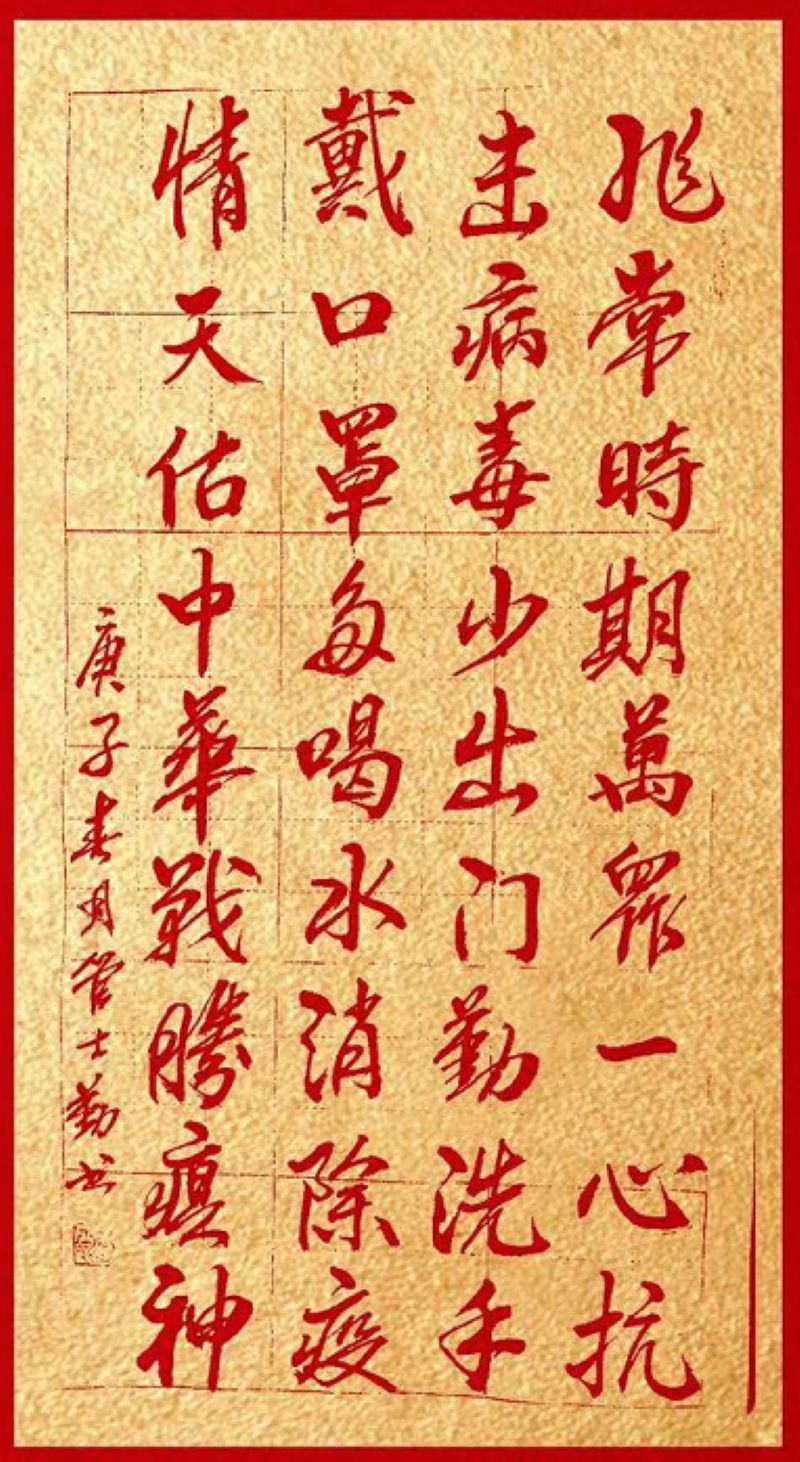 非常時期萬眾一心抗
击病毒少出门勤洗手
戴口罩多喝水消除疫
情天佑中華戰勝瘟神
庚子春月管士勤书